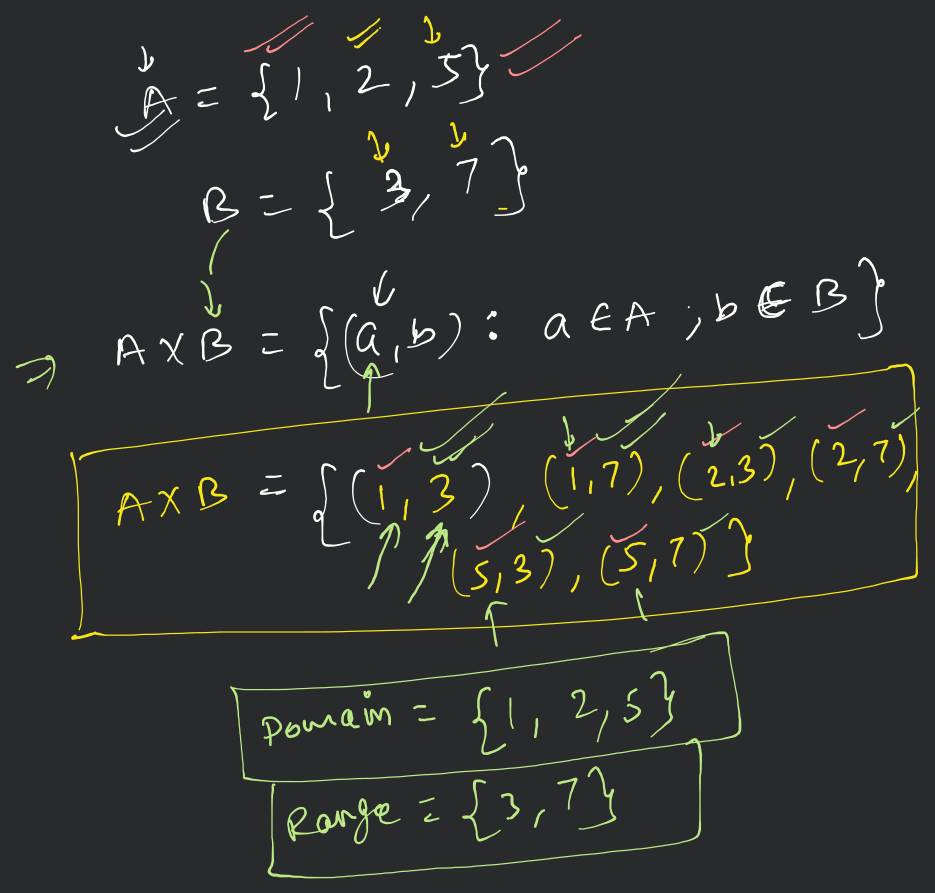 A = {1, 2, 5}
B = {3, 7}
A X B = {(a, b) : a ∈ A ; b ∈ B}
A X B = {(1, 3), (1, 7), (2, 3), (2, 7),
(5, 3), (5, 7)}
Domain = {1, 2, 5}
Range = {3, 7}